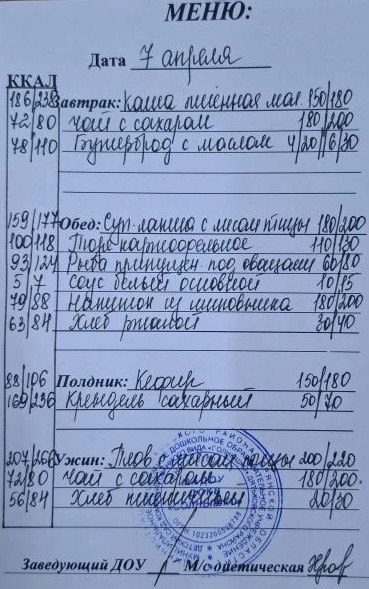 МЕНЮ:
Дата 7 апреля
ККАЛ
186/238 Завтрак: Каша пшённая мол. 150/180
72/80 Чай с сахаром 180/200
78/110 Бутерброд с маслом 4/20//6/30
159/177 Обед: Суп-лапша с мясом птицы 180/200
100/118 Пюре картофельное 110/130
93/124 Рыба припущен. под овощами 60/80
5/7 Соус белый основной 10/15
79/88 Напиток из шиповника 180/200
63/84 Хлеб ржаной 30/40
88/106 Полдник: Кефир 150/180
169/236 Крендель сахарный 50/70
207/266 Ужин: Плов с мясом птицы 200/220
72/80 Чай с сахаром 180/200.
56/84 Хлеб пшеничный 20/30
Заведующий ДОУ М/с диетическая